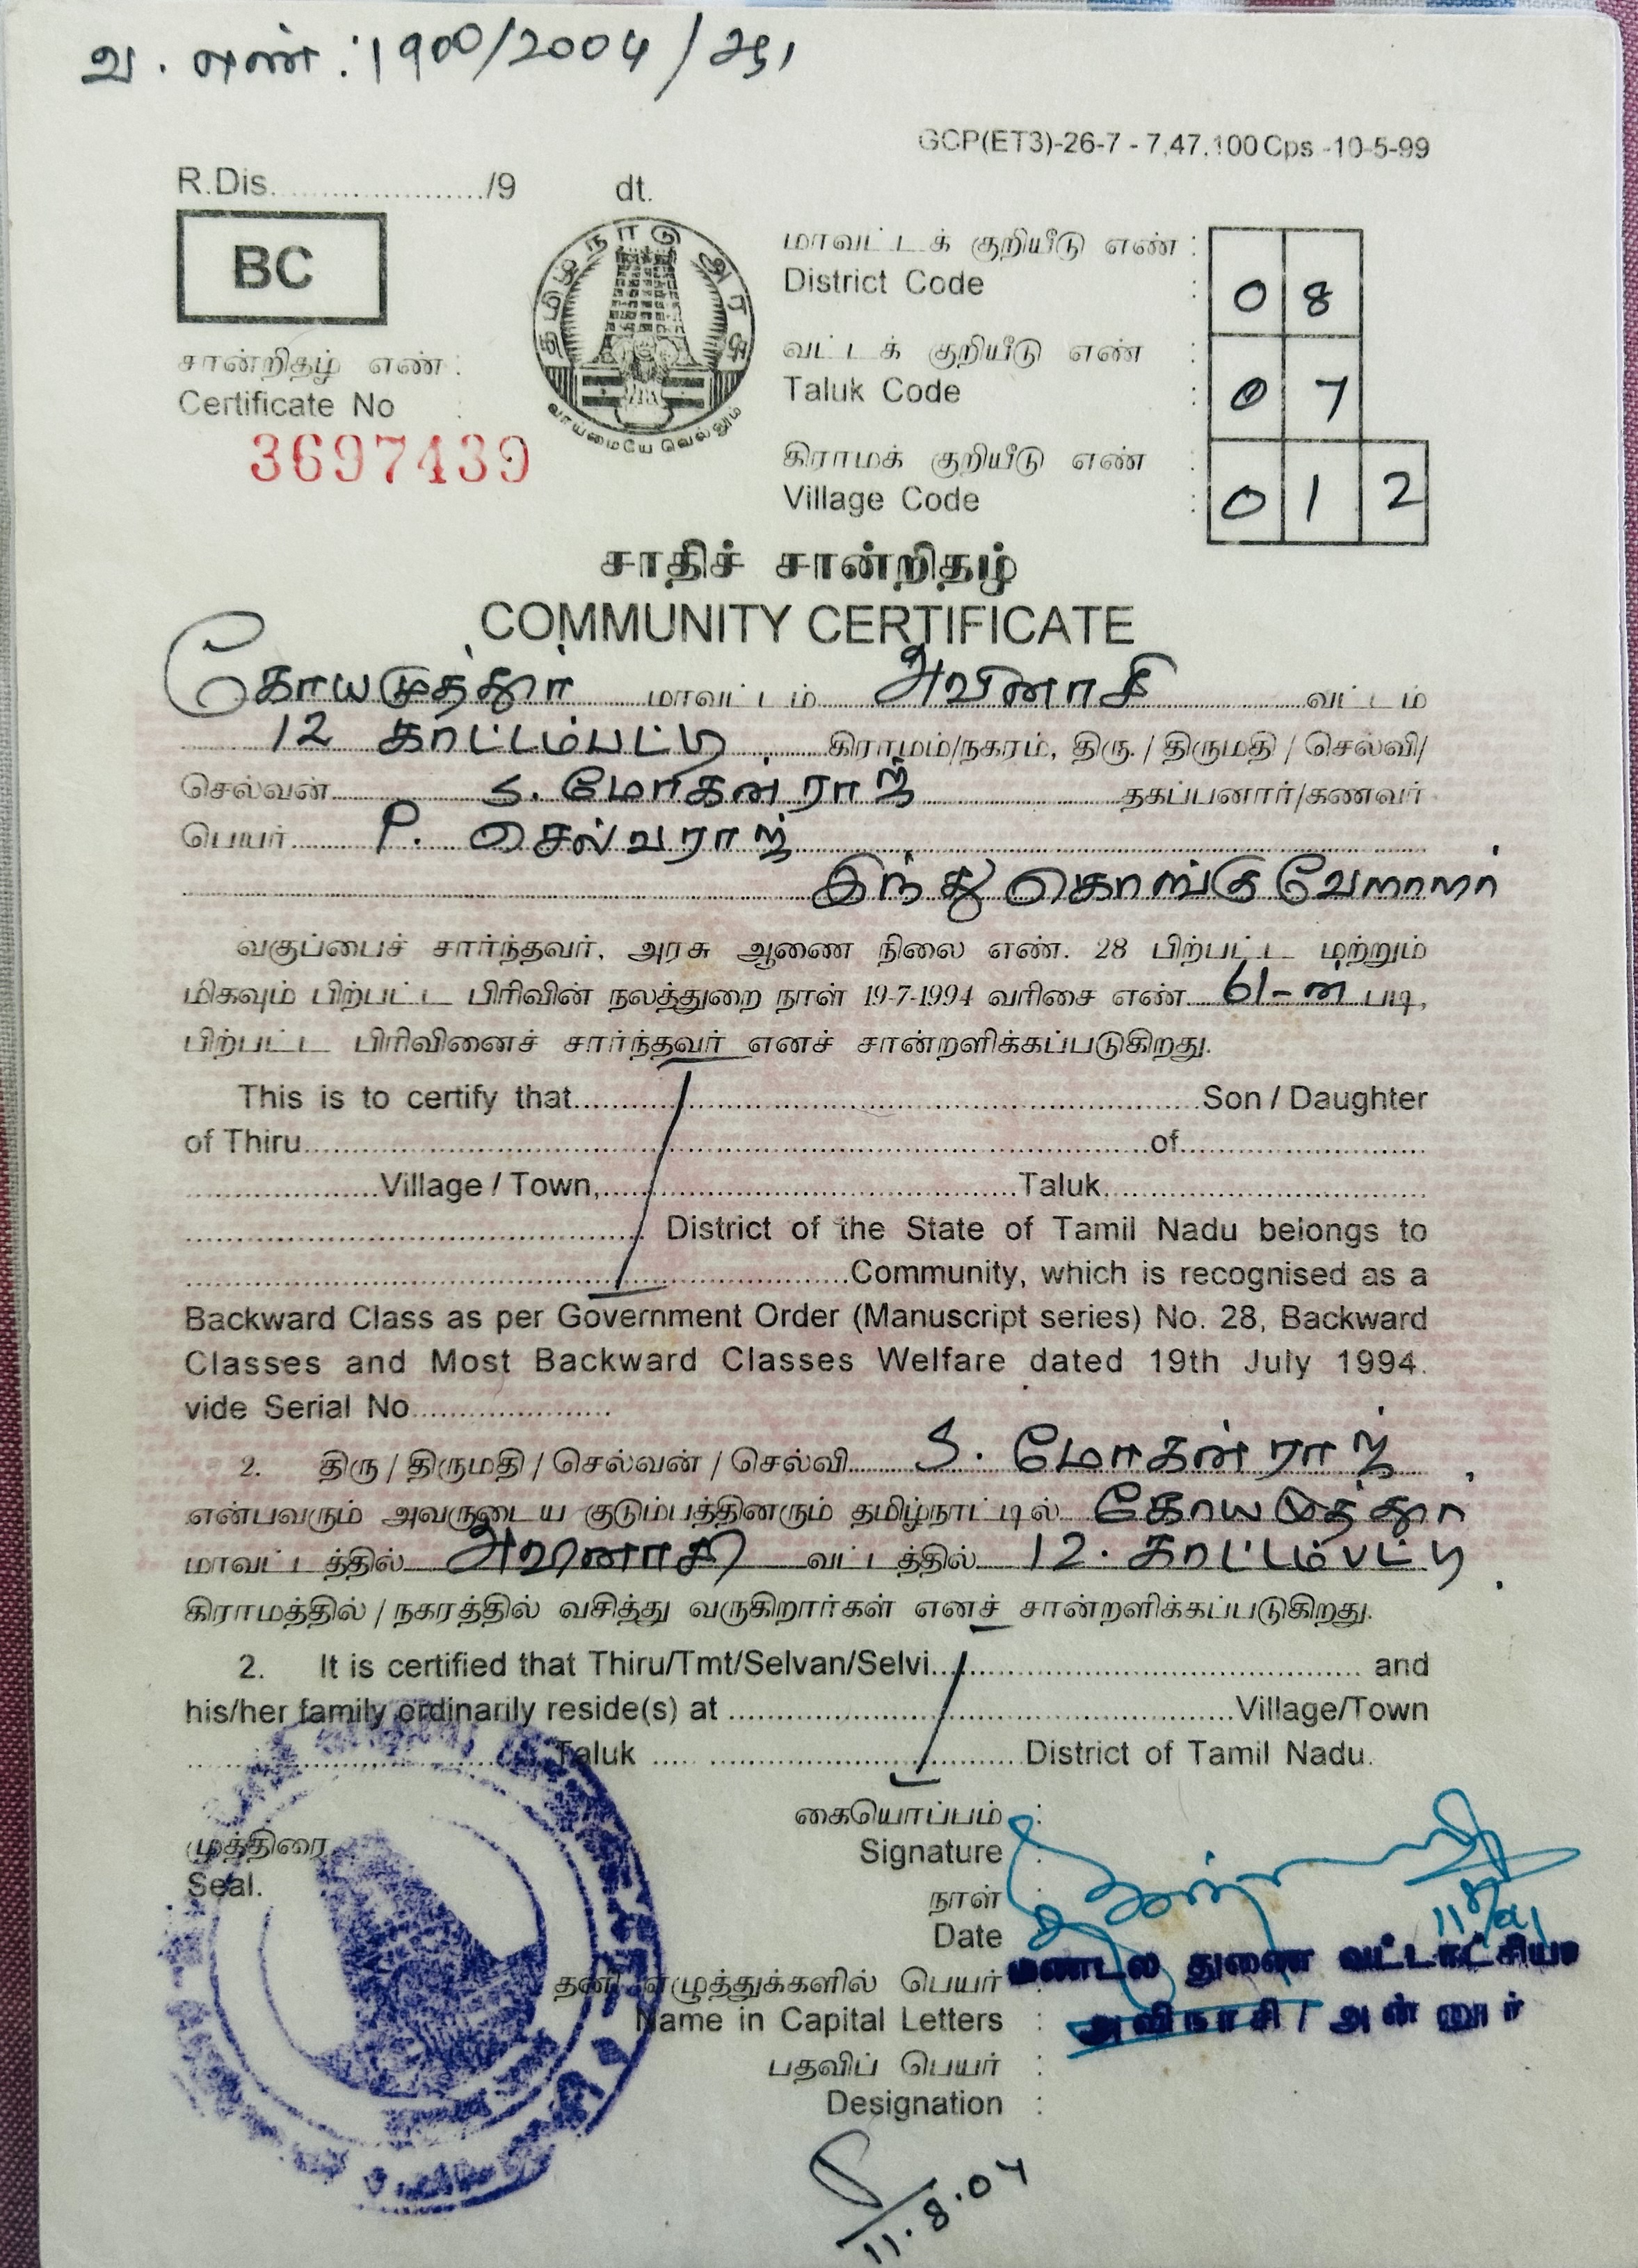 வ. எண் : 1900/2004/அ1
GCP(ET3)-26-7 - 7,47,100 Cps -10-5-99
R.Dis...................../9 dt.
BC
தமிழ்நாடு அரசு
வாய்மையே வெல்லும்
மாவட்டக் குறியீடு எண் :
District Code : 0 8
வட்டக் குறியீடு எண் :
Taluk Code : 0 7
கிராமக் குறியீடு எண் :
Village Code : 0 1 2
சான்றிதழ் எண் :
Certificate No :
3697439
சாதிச் சான்றிதழ்
COMMUNITY CERTIFICATE
கோயமுத்தூர் மாவட்டம் அவினாசி வட்டம்
12 காட்டம்பட்டி கிராமம்/நகரம், திரு. / திருமதி / செல்வி/
செல்வன் S. மோகன்ராஜ் தகப்பனார்/கணவர்
பெயர் P. செல்வராஜ்
இந்து கொங்கு வேளாளர்
வகுப்பைச் சார்ந்தவர், அரசு ஆணை நிலை எண். 28 பிற்பட்ட மற்றும்
மிகவும் பிற்பட்ட பிரிவின் நலத்துறை நாள் 19-7-1994 வரிசை எண் 61-ன் படி,
பிற்பட்ட பிரிவினைச் சார்ந்தவர் எனச் சான்றளிக்கப்படுகிறது.
This is to certify that.......... Son / Daughter
of Thiru.......... of..........
.......... Village / Town,.......... Taluk..........
.......... District of the State of Tamil Nadu belongs to
.......... Community, which is recognised as a
Backward Class as per Government Order (Manuscript series) No. 28, Backward
Classes and Most Backward Classes Welfare dated 19th July 1994.
vide Serial No..........
2. திரு / திருமதி / செல்வன் / செல்வி S. மோகன்ராஜ்
என்பவரும் அவருடைய குடும்பத்தினரும் தமிழ்நாட்டில் கோயமுத்தூர்
மாவட்டத்தில் அவினாசி வட்டத்தில் 12. காட்டம்பட்டி
கிராமத்தில் / நகரத்தில் வசித்து வருகிறார்கள் எனச் சான்றளிக்கப்படுகிறது.
2. It is certified that Thiru/Tmt/Selvan/Selvi.......... and
his/her family ordinarily reside(s) at .......... Village/Town
.......... Taluk .......... District of Tamil Nadu.
முத்திரை
Seal.
கையொப்பம் :
Signature :
நாள் :
Date
தனி எழுத்துக்களில் பெயர் :
மண்டல துணை வட்டாட்சியர்
Name in Capital Letters :
அவிநாசி / அன்னூர்
பதவிப் பெயர் :
Designation :
11.8.04